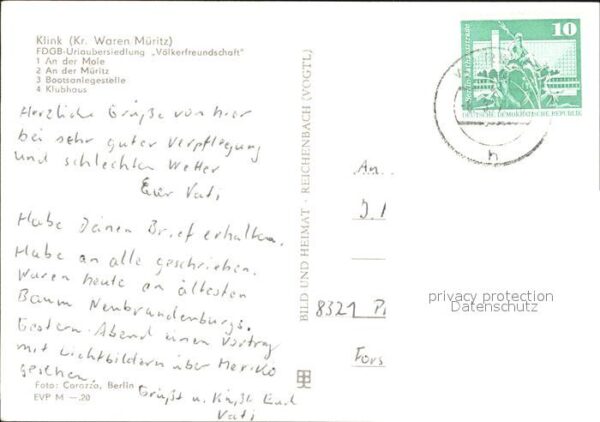 Klink (Kr. Waren Müritz)
FDGB-Urlaubersiedlung „Völkerfreundschaft"
1 An der Mole
2 An der Müritz
3 Bootsanlegestelle
4 Klubhaus
Herzliche Grüße von hier
bei sehr guter Verpflegung
und schlechten Wetter
Euer Vati
Habe Deinen Brief erhalten.
Habe an alle geschrieben.
Waren heute an ältesten
Baum Neubrandenburgs.
Gestern Abend einen Vortrag
mit Lichtbildern über Mexiko
gesehen.
Grüßt u. Küßt Euch
Vati
Foto: Corazza, Berlin
EVP M —.20
BILD UND HEIMAT · REICHENBACH (VOGTL)
10
DEUTSCHE DEMOKRATISCHE REPUBLIK
An
J.
8321
Fors
privacy protection
Datenschutz